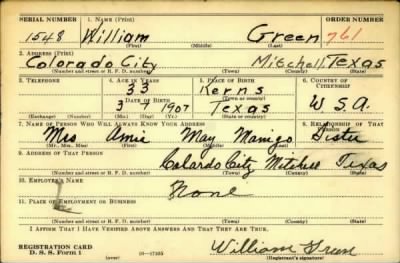 SERIAL NUMBER 1. NAME (Print) ORDER NUMBER
1548 William Green 761
(First) (Middle) (Last)
2. ADDRESS (Print)
Colorado City Mitchell, Texas
(Number and street or R. F. D. number) (Town) (County) (State)
3. TELEPHONE 4. AGE IN YEARS 5. PLACE OF BIRTH 6. COUNTRY OF CITIZENSHIP
33 Kerns
DATE OF BIRTH (Town or county)
3 7 1907 Texas U.S.A.
(Exchange) (Number) (Mo.) (Day) (Yr.) (State or country)
7. NAME OF PERSON WHO WILL ALWAYS KNOW YOUR ADDRESS 8. RELATIONSHIP OF THAT PERSON
Mrs Amie May Manigo Sister
(Mr., Mrs., Miss) (First) (Middle) (Last)
9. ADDRESS OF THAT PERSON
Colardo City Mitchell Texas
(Number and street or R. F. D. number) (Town) (County) (State)
10. EMPLOYER'S NAME
None
11. PLACE OF EMPLOYMENT OR BUSINESS
(Number and street or R. F. D. number) (Town) (County) (State)
I AFFIRM THAT I HAVE VERIFIED ABOVE ANSWERS AND THAT THEY ARE TRUE.
REGISTRATION CARD
D. S. S. Form 1 (over) 16—17105 William Green
(Registrant's signature)